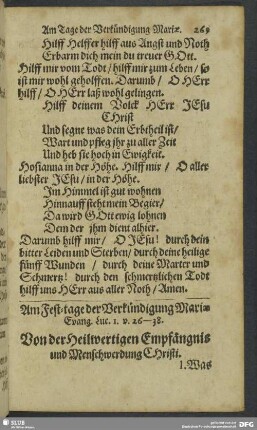 Am Tage der Verkündigung Mariæ. 269
Hilff Helffer hilff aus Angst und Noth
Erbarm dich mein du treuer GOtt.
Hilff mir vom Todt/ hilff mir zum Leben/ so
ist mir wohl geholffen. Darumb/ O HErr
hilff/ O HErr laß wohl gelingen.
Hilff deinem Volck HErr JEsu
CHrist
Und segne was dein Erbtheil ist/
Wart und pfleg ihr zu aller Zeit
Und heb sie hoch in Ewigkeit.
Hosianna in der Höhe. Hilff mir/ O aller
liebster JEsu/ in der Höhe.
Im Himmel ist gut wohnen
Hinnauff steht mein Begier/
Da wird GOtt ewig lohnen
Dem der ihm dient alhier.
Darumb hilff mir/ O JEsu! durch dein
bitter Leiden und Sterben/ durch deine heilige
fünff Wunden/ durch deine Marter und
Schmertz! durch den schmertzlichen Todt
hilff uns HErr aus aller Noth/ Amen.
Am Fest-tage der Verkündigung Mariæ
Evang. Luc. 1. v. 26—38.
Von der Heilwertigen Empfängnis
und Menschwerdung CHristi.
1. Was
SLUB
DFG